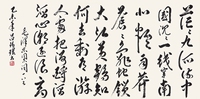 茫茫九派流中
国沉沉一线穿南
北烟雨莽
苍苍龟蛇锁
大江黄鹤知
何去剩有游
人处把酒酹滔
滔心潮逐浪高
毛泽东